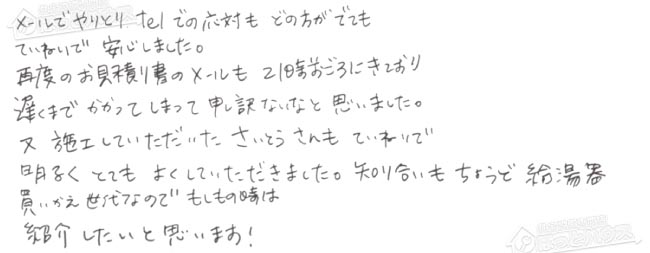 メールでやりとり telでの応対も どの方がでても
ていねいで 安心しました。
再度のお見積り書のメールも 21時前ごろにきており
遅くまで かかってしまって 申し訳ないなと 思いました。
又 施工していただいた さいとうさんも ていねいで
明るく とても よくしていただきました。知り合いも ちょうど 給湯器
買いかえ世代なので もしもの時は
紹介 したいと 思います!